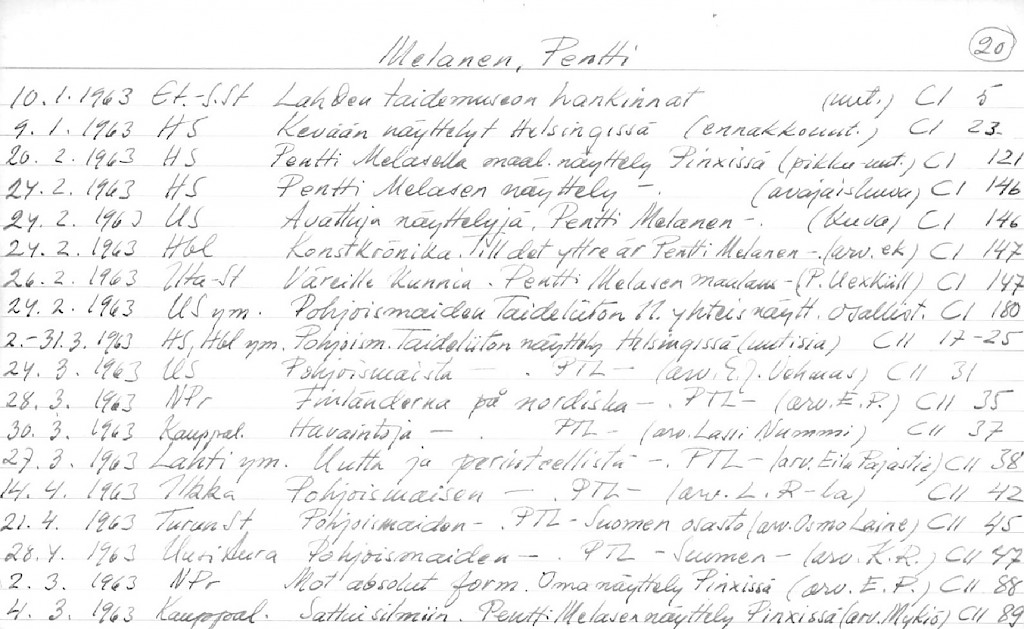 20
Melanen, Pentti
10.1.1963 Et.-S.St Lahden taidemuseon hankinnat (uut.) CI 5
9.1.1963 HS Kevään näyttelyt Helsingissä (ennakkouut.) CI 23.
20.2.1963 HS Pentti Melasella maal. näyttely Pinxissä (pikku-uut.) CI 121
24.2.1963 HS Pentti Melasen näyttely -. (avajaiskuva) CI 146
24.2.1963 US Avattuja näyttelyjä, Pentti Melanen -. (kuva) CI 146
24.2.1963 Hbl Konstkrönika. Till det yttre är Pentti Melanen -. (arv. ek) CI 147
26.2.1963 Ilta-St Väreille kunnia. Pentti Melasen - (P. Uexküll) CI 147
24.2.1963 US ym. Pohjoismaiden Taideliiton 11. yhteisnäytt. osallist. CI 180
2.-31.3.1963 HS, Hbl ym. Pohjoism. Taideliiton näyttely Helsingissä (uutisia) CII 17-25
24.3.1963 US Pohjoismaista - . PTL - (arv. E.J. Vehmas) CII 31
28.3.1963 NPr Finländerna på nordiska -. PTL - (arv. E.P.) CII 35
30.3.1963 Kauppal. Havaintoja - . PTL - (arv. Lassi Nummi) CII 37
27.3.1963 Lahti ym. Uutta ja perinteellistä -. PTL - (arv. Eila Pajastie) CII 38
14.4.1963 Ilkka Pohjoismaisen - . PTL - (arv. L. R-la) CII 42
21.4.1963 TurunSt Pohjoismaiden - . PTL - Suomen osasto (arv. Osmo Laine) CII 45
28.4.1963 Uusi Aura Pohjoismaiden - . PTL - Suomen - (arv. K.R.) CII 47
2.3.1963 NPr Mot absolut form. Oma näyttely Pinxissä (arv. E.P.) CII 88
4.3.1963 Kauppal. Sattui silmiin. Pentti Melasen näyttely Pinxissä (arv. Mykiö) CII 89